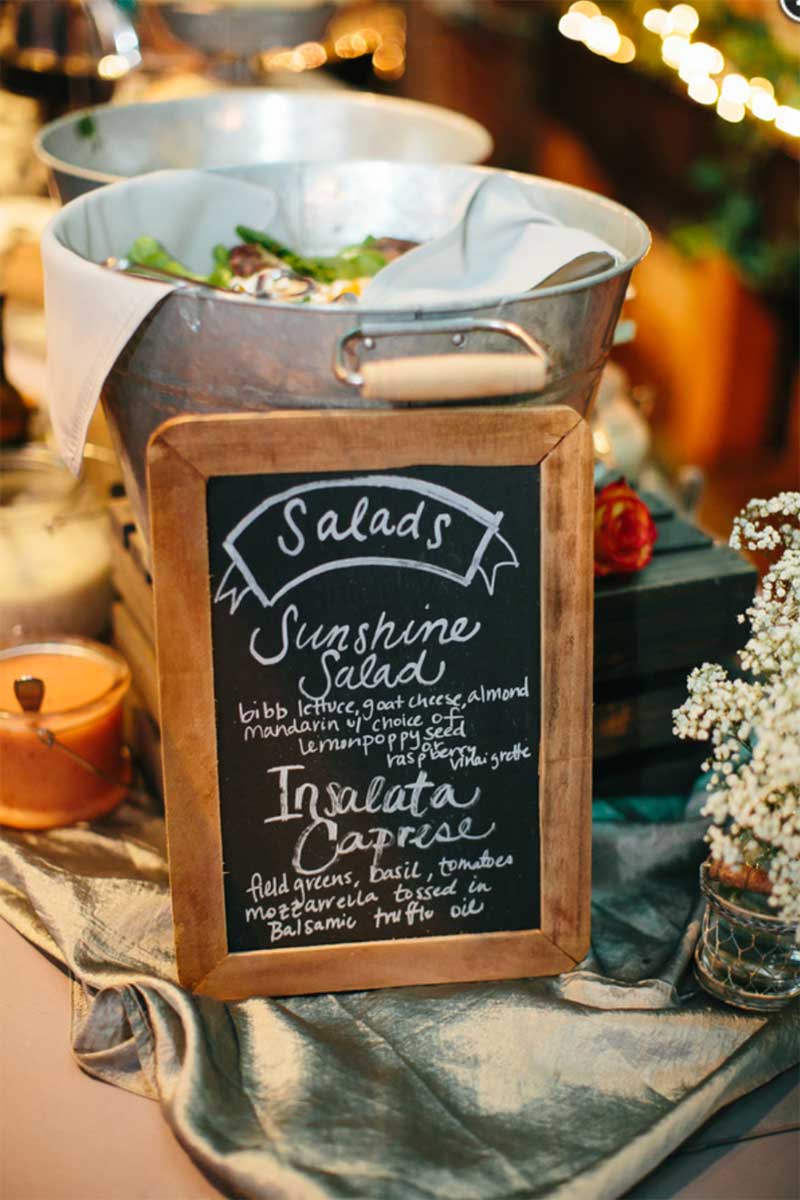 Salads
Sunshine
Salad
bibb lettuce, goat cheese, almond
mandarin w/ choice of
lemonpoppy seed
or
raspberry vinaigrette
Insalata
Caprese
field greens, basil, tomatoes
mozzarella tossed in
Balsamic truffle oil